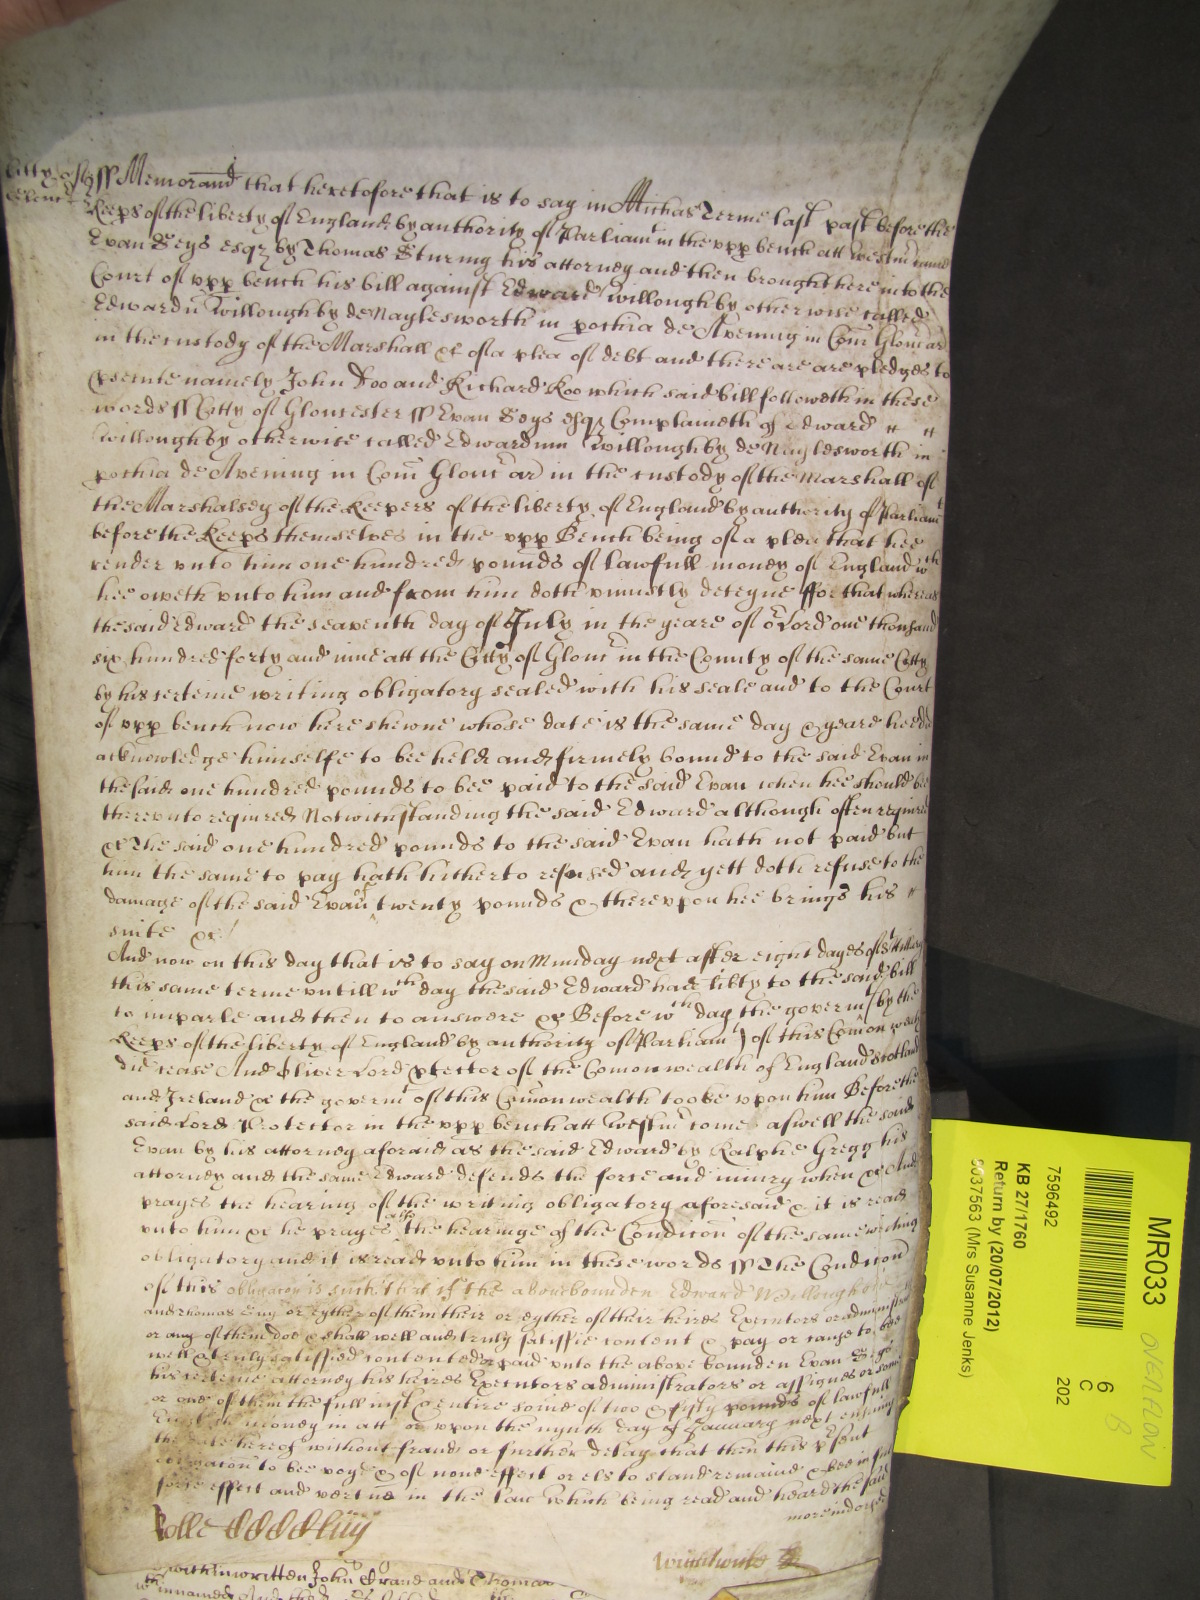 Citty of ss Memorand that heretofore that is to say in Michas Terme last past before the
Glouc
Keeps of the liberty of England by authority of Parliamt in the upp bench att Westmr came
Evan Seys esqz by Thomas Sturing his attorney and then brought here into the
Court of upp bench his bill against Edward Willoughby otherwise called
Edwardu Willoughby de Naylesworth in pochia de Avening in Com Glouc ar
in the custody of the Marshall &c of a plea of debt and there are are pledges to
psecute namely John Doo and Richard Roo which said bill followeth in these
words ss Citty of Gloucester ss Evan Seys esqz Complaineth of Edward
Willoughby otherwise called Edwardum Willoughby de Naylesworth in
pochia de Avening in Com Glouc ar in the custody of the Marshall of
the Marshalsey of the Keepers of the liberty of England by authority of Parliamt
before the Keeps themselves in the upp Bench being of a plea that hee
render unto him one hundred pounds of lawfull money of England wch
hee oweth unto him and from him doth uniustly deteyne ffor that whereas
the said Edward the seaventh day of July in the yeare of or Lord one thousand
six hundred forty and nine att the Citty of Glouc in the County of the same Citty
by his certeine writing obligatory sealed with his seale and to the Court
of upp bench now here shewne whose date is the same day & yeare hee did
acknowledge himselfe to bee held and firmely bound to the said Evan in
the said one hundred pounds to bee paid to the said Evan when hee should bee
thereunto required Notwithstanding the said Edward although often required
&c the said one hundred pounds to the said Evan hath not paid but
him the same to pay hath hitherto refused and yett doth refuse to the
damage of the said Evan of twenty pounds & thereupon hee brings his
suite &c
And now on this day that is to say on Munday next after eight dayes of St Hillary
this same terme untill wch day the said Edward had libty to the said bill
to imparle and then to answere &c Before wch day the governmt (by the
Keeps of the liberty of England by authority of Parliamt) of this Comon wealth
did cease And Oliver Lord ptector of the Comonwealth of England Scotland
and Ireland &c the governmt of this Comonwealth tooke upon him Before the
said Lord Protector in the upp bench att Westmr come aswell the said
Evan by his attorney aforesaid as the said Edward by Ralphe Gregg his
attorney and the same Edward defends the force and iniury when &c And
prayes the hearing of the writing obligatory aforesaid & it is read
unto him &c he prayes also the hearinge of the Condicon of the same writing
obligatory and it is read unto him in these words ss The Condicon
of this obligacon is such that if the abovebounden Edward Willoughby
and Thomas or eyther of them their or eyther of their heires Executors or administrators
or any of them doe & shall well and truly satisfie content & pay or cause to bee
well & truly satisfied contented & paid unto the above bounden Evan Seys
his certeine attorney his heires Executors administrators or assignes or some
or one of them the full iust & entire some of two & fifty pounds of lawfull
English money in att or upon the nynth day of January next ensuing
the date hereof without fraud or further delay that then this psent
obligacon to bee voyd & of none effect or els to stand remaine & bee in full
force effect and vertue in the Law Which being read and heard the said
more indorsed
Rolle
Wrightwicke
within written John and Thomas